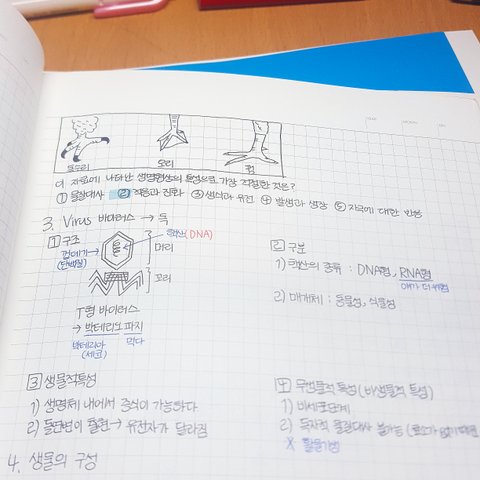 독수리 오리 닭
이 자료에 나타난 생명현상의 특성으로 가장 적절한 것은?
① 물질대사 ② 적응과 진화 ③ 생식과 유전 ④ 발생과 생장 ⑤ 자극에 대한 반응
3. Virus 바이러스 → 독
1 구조
핵산(DNA)
껍데기
(단백질)
머리
꼬리
T형 바이러스
→ 박테리오 파지
박테리아 먹다
(세균)
2 구분
1) 핵산의 종류 : DNA형, RNA형
얘가 더 위험
2) 매개체 : 동물성, 식물성
3 생물적특성
1) 생명체 내에서 증식이 가능하다
2) 돌연변이 출현 → 유전자가 달라짐
4 무생물적 특성 (비생물적 특성)
1) 비세포단계
2) 독자적 물질대사 불가능 (효소가 없기때문
X 활물기생
4. 생물의 구성